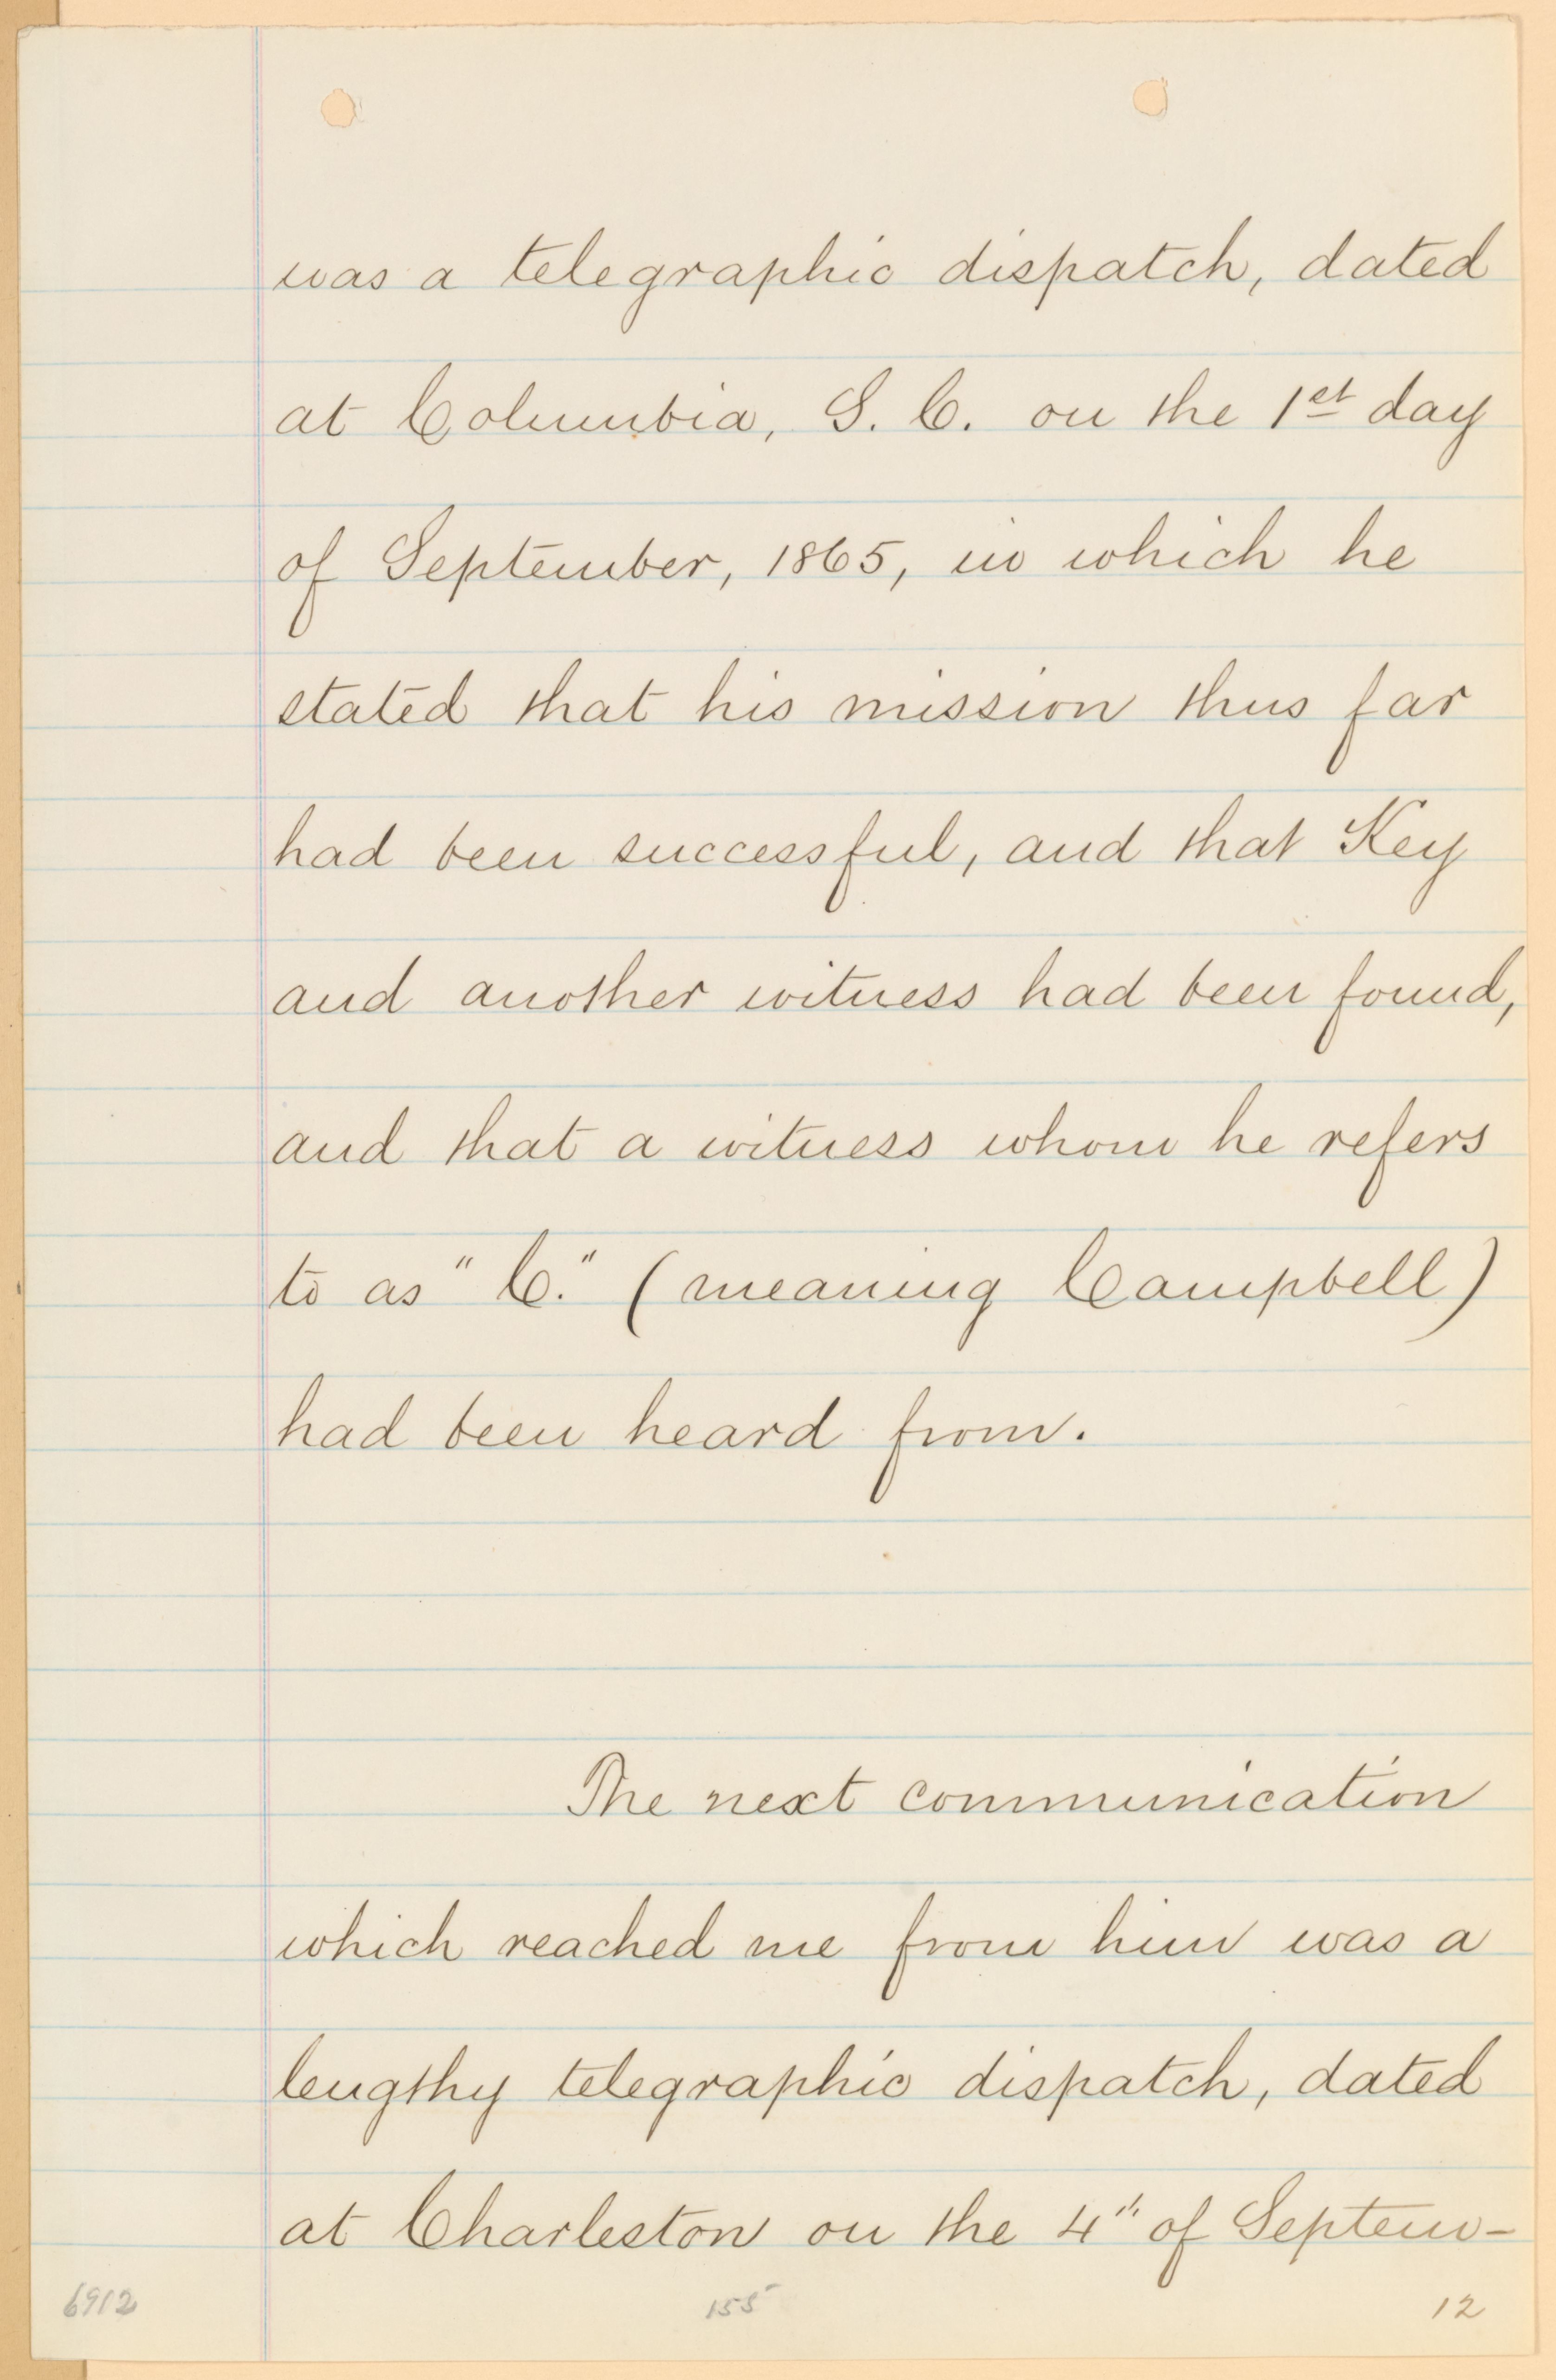 was a telegraphic dispatch, dated
at Columbia, S. C. on the 1st day
of September, 1865, in which he
stated that his mission thus far
had been successful, and that Key
and another witness had been found,
and that a witness whom he refers
to as "C." (meaning Campbell)
had been heard from.
The next communication
which reached me from him was a
lengthy telegraphic dispatch, dated
at Charleston on the 4" of Septem-
6912 155 12